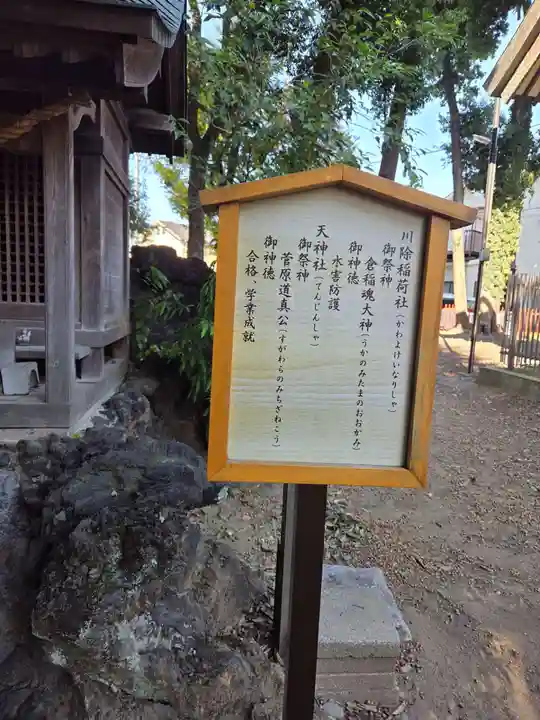 川除稲荷社(かわよけいなりしゃ)
御祭神
倉稲魂大神(うかのみたまのおおかみ)
御神徳
水害防護
天神社(てんじんしゃ)
御祭神
菅原道真公(すがわらのみちざねこう)
御神徳
合格、学業成就